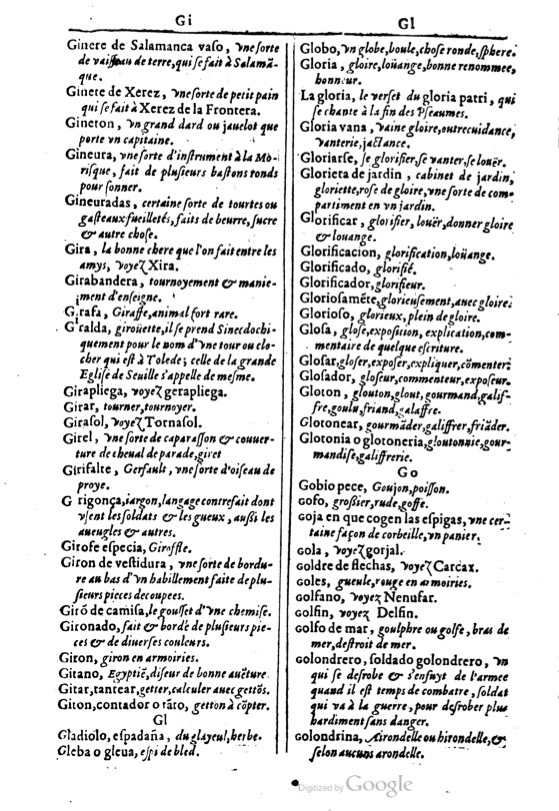 Gi
Ginere de Salamanca vaso, vne sorte
de vaisseau de terre, qui se fait à Salamã-
que.
Ginete de Xerez, vne sorte de petit pain
qui se fait à Xerez de la Frontera.
Gineton, vn grand dard ou jauelot que
porte vn capitaine.
Gineura, vne sorte d'instrument à la Mo-
risque, fait de plusieurs bastons ronds
pour sonner.
Gineuradas, certaine sorte de tourtes ou
gasteaux fueilletés, faits de beurre, sucre
& autre chose.
Gira, la bonne chere que l'on fait entre les
amys, voyez Xira.
Girabandera, tournoyement & manie-
ment d'enseigne.
Girafa, Giraffe, animal fort rare.
Giralda, girouette, il se prend Sinecdochi-
quement pour le nom d'vne tour ou clo-
cher qui est à Tolede; celle de la grande
Eglise de Seuille s'appelle de mesme.
Girapliega, voyez gerapliega.
Girar, tourner, tournoyer.
Girasol, voyez Tornasol.
Girel, vne sorte de caparasson & couuer-
ture de cheual de parade, giret
Girifalte, Gerfault, vne sorte d'oiseau de
proye.
Girigonça, iargon, langage contrefait dont
vsent les soldats & les gueux, aussi les
aueugles & autres.
Girofe especia, Giroffle.
Giron de vestidura, vne sorte de bordu-
re au bas d'vn habillement faite de plu-
sieurs pieces decoupees.
Girõ de camisa, le gousset d'vne chemise.
Gironado, fait & bordé de plusieurs pie-
ces & de diuerses couleurs.
Giron, giron en armoiries.
Gitano, Egyptiẽ, diseur de bonne auẽture.
Gitar, tantear, getter, calculer auec gettõs.
Giton, contador o tãto, getton à cõpter.
Gl
Gladiolo, espadaña, du glayeul, herbe.
Gleba o gleua, espi de bled.
Gl
Globo, vn globe, boule, chose ronde, sphere.
Gloria, gloire, loüange, bonne renommee,
honneur.
La gloria, le verset du gloria patri, qui
se chante à la fin des Pseaumes.
Gloria vana, vaine gloire, outrecuidance,
vanterie, jactance.
Gloriarse, se glorifier, se vanter, se loüer.
Glorieta de jardin, cabinet de jardin,
gloriette, rose de gloire, vne sorte de com-
partiment en vn jardin.
Glorificar, glorifier, louër, donner gloire
& louange.
Glorificacion, glorification, loüange.
Glorificado, glorifié.
Glorificador, glorifieur.
Gloriosamẽte, glorieusement, auec gloire.
Glorioso, glorieux, plein de gloire.
Glosa, glose, exposition, explication, com-
mentaire de quelque escriture.
Glosar, gloser, exposer, expliquer, cõmenter.
Glosador, gloseur, commenteur, exposeur.
Gloton, glouton, glout, gourmand, galif-
fre, goulu, friand, galaffre.
Glotonear, gourmãder, galiffrer, friãder.
Glotonia o glotoneria, gloutonnie, gour-
mandise, galiffrerie.
Go
Gobio pece, Goujon, poisson.
gofo, grossier, rude, goffe.
goja en que cogen las espigas, vne cer-
taine façon de corbeille, vn panier.
gola, voyez gorjal.
goldre de flechas, voyez Carcax.
goles, gueule, rouge en armoiries.
golfano, voyez Nenufar.
golfin, voyez Delfin.
golfo de mar, goulphre ou golfe, bras de
mer, destroit de mer.
golondrero, soldado golondrero, vn
qui se desrobe & s'ensuyt de l'armee
quand il est temps de combatre, soldat
qui va à la guerre, pour desrober plus
hardiment sans danger.
golondrina, Airondelle ou hirondelle, &
selon aucuns arondelle.
Digitized by Google